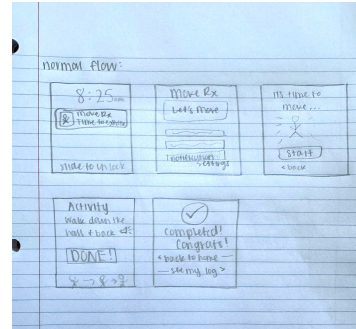 normal flow:
8:25am
Move Rx
Time to
slide to unlock
Move Rx
Let's Move
notification
settings
It's time to
move...
Start
< back
Activity
Walk down the
hall & back
DONE!
Completed!
Congrats!
< back to home
see my log >